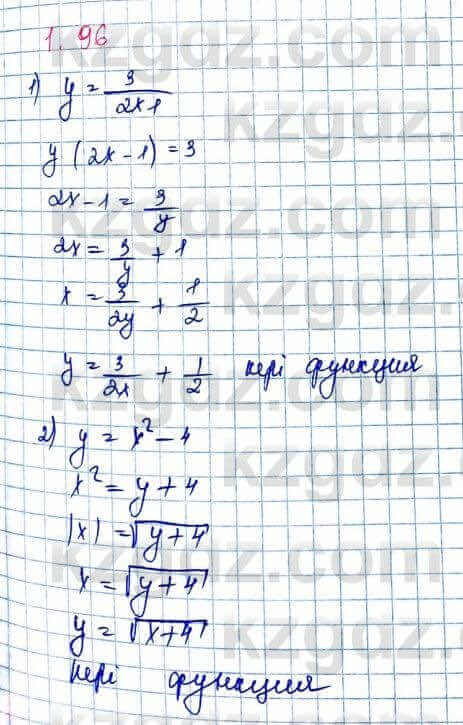 1.96
1) y = 3/2x1
y (2x - 1) = 3
2x - 1 = 3/y
2x = 3/y + 1
x = 3/2y + 1/2
y = 3/2x + 1/2 кері функция
2) y = x² - 4
x² = y + 4
|x| = √y+4
x = √y+4
y = √x+4
кері функция
kzgdz.com